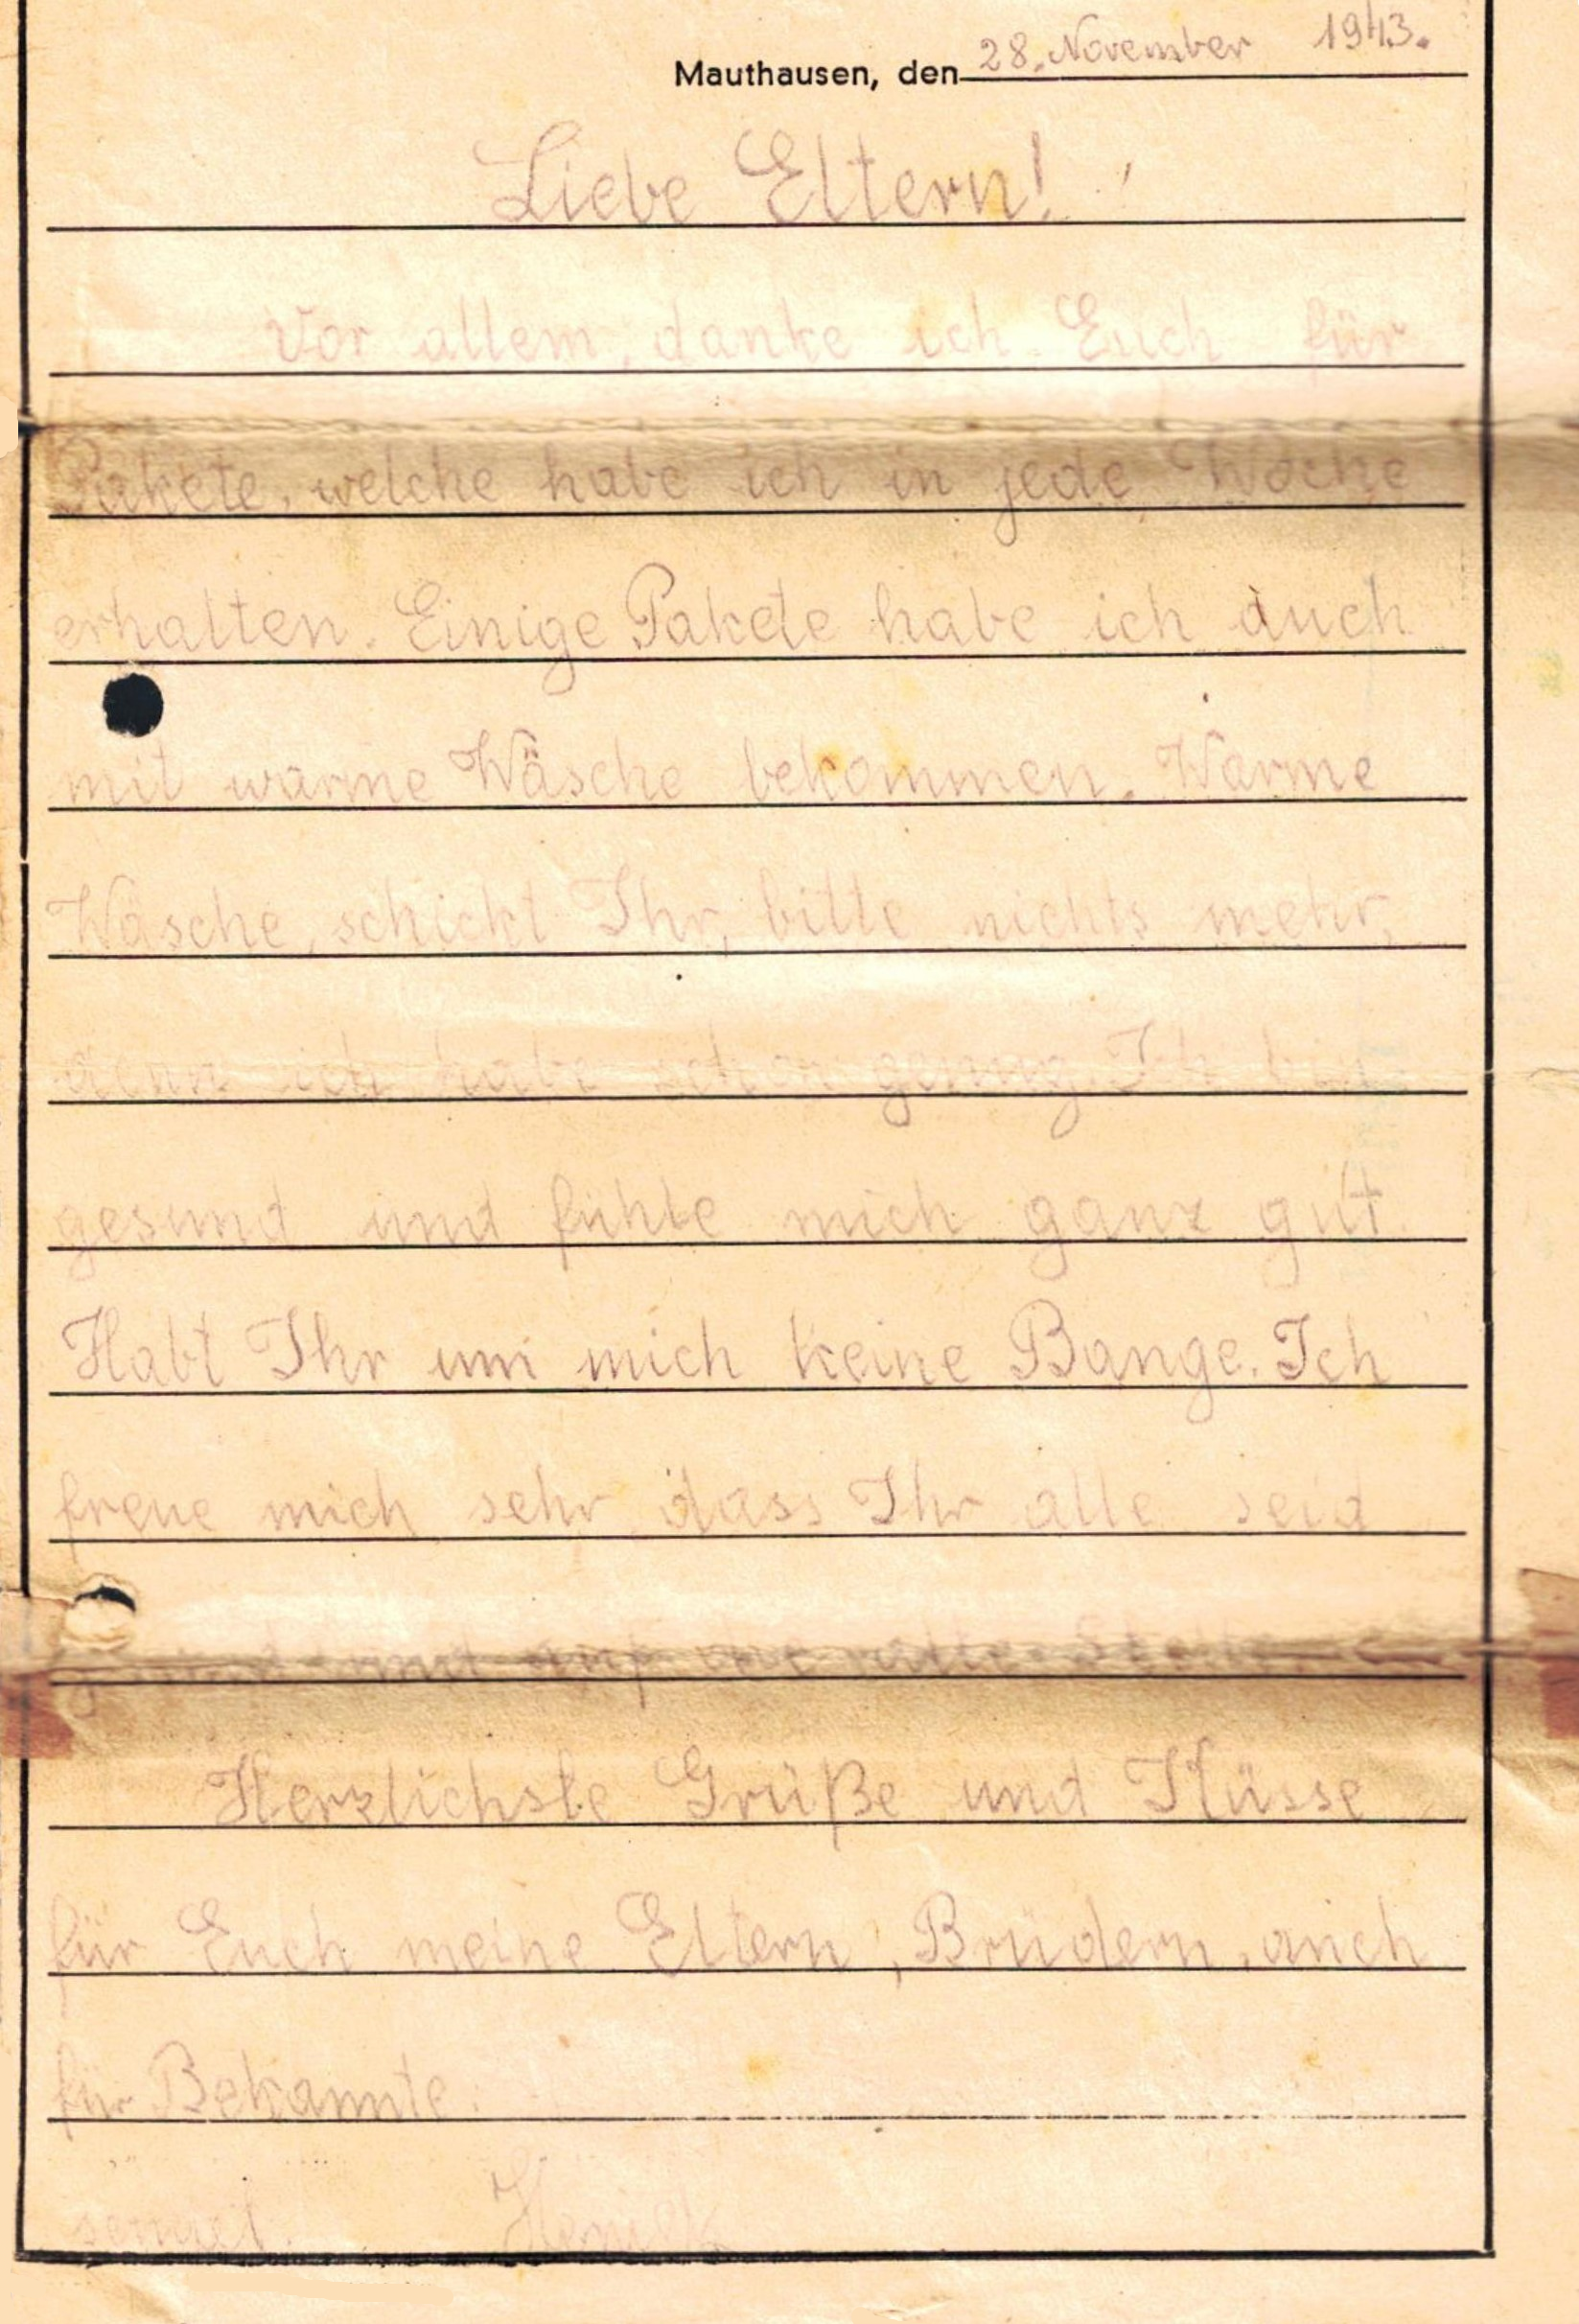 Mauthausen, den 28. November 1943.
Liebe Eltern!
Vor allem, danke ich Euch für
Pakete, welche habe ich in jede Woche
erhalten. Einige Pakete habe ich auch
mit warme Wäsche bekommen. Warme
Wäsche, schickt Ihr, bitte nichts mehr,
denn ich habe schon genug. Ich bin
gesund und fühle mich ganz gut.
Habt Ihr um mich keine Bange. Ich
freue mich sehr, dass Ihr alle seid
und auf die alte Stelle.
Herzlichste Grüße und Küsse
für Euch meine Eltern, Brüdern, auch
für Bekannte.
sendet Heniek